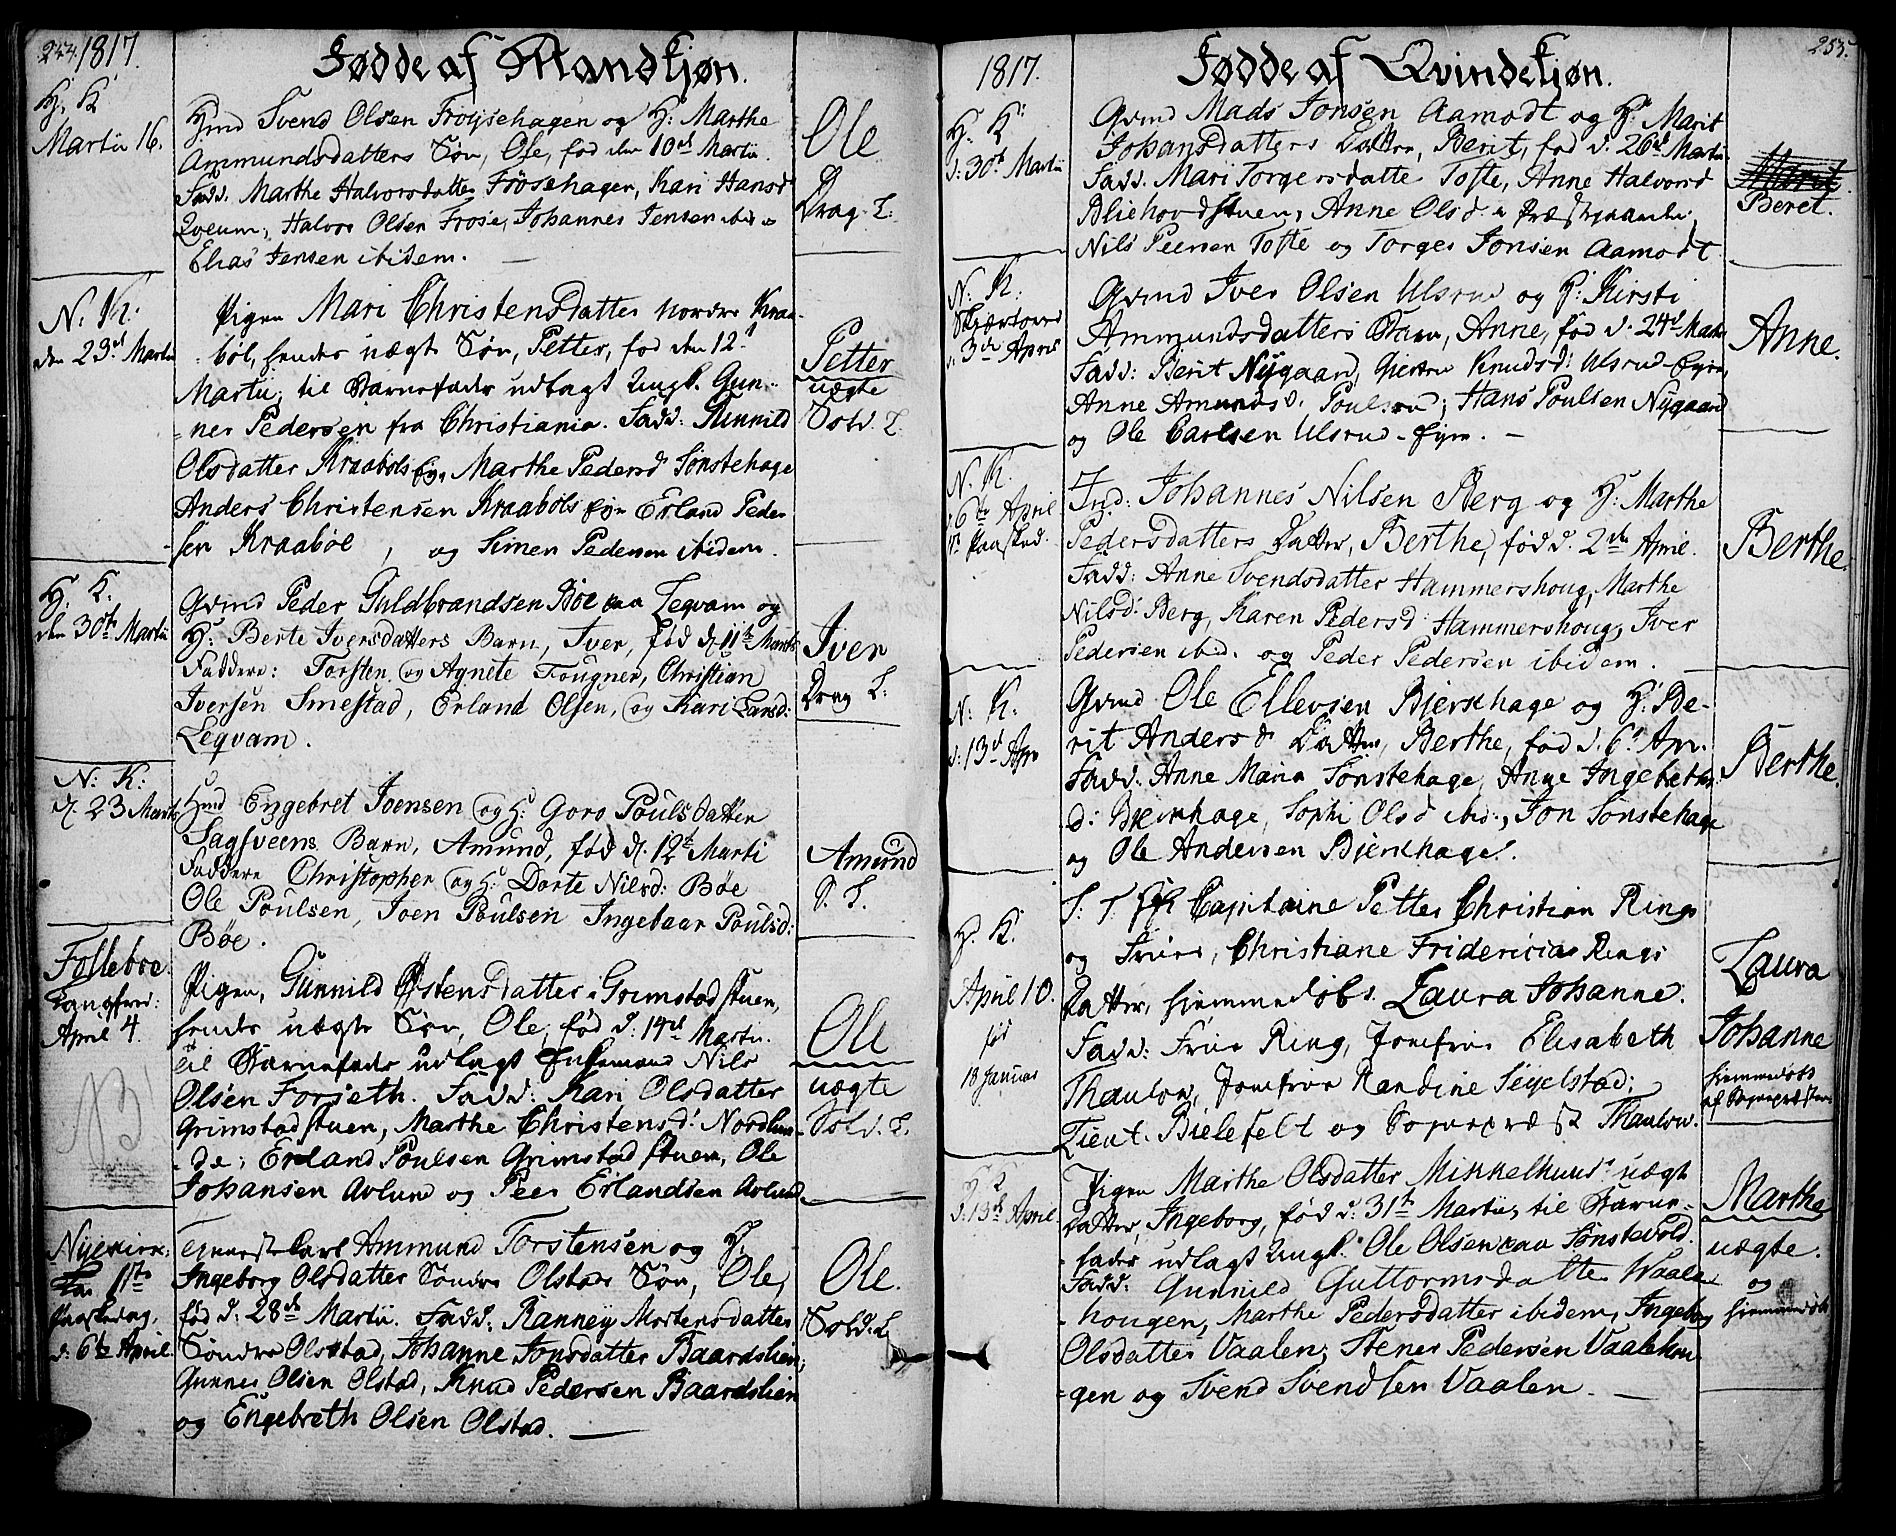 254. 1817.
Fødde af Mandkjøn.
H. K.
Martii 16.
Hmd Svend Olsen Froysehagen og H: Marthe
Ammundsdatters Søn, Ole, fød den 10de Martii.
Fadd. Marthe Halvorsdatter Frösehagen, Kari Hansd
Qveum, Halvor Olsen Frose, Johannes Jensen ibid
Elias Jensen ibidem.
Ole
Drag. L.
N. K.
den 23de Martii
Pigen Mari Christensdatter nordre Kraa-
bøl, hendes uægte Søn, Petter, fød den 12te
Martii, til Barnefader udlagt Ungk. Gun-
ner Pedersen fra Christiania. Fadd: Gunnild
Olsdatter Kraabøls Eje, Marthe Pedersd Sønstehage
Anders Christensen Kraabøls Eje Erland Peder
sen Kraabøe, og Simen Pedersen ibidem.
Petter
uægte
Sold. L.
H. K.
den 30te Martii
Gvmd Peder Guldbrandsen Bøe paa Legvam og
H: Berte Iversdatters Barn, Iver, fød d. 11te Marts
Faddere: Torsten og Agnete Fougner, Christian
Iversen Smestad, Erland Olsen, og Kari Larsd:
Leqvam.
Iver
Drag L:
N: K:
d. 23 Marts
Hmd Engebret Joensen og H: Goro Poulsdatter
Sagsveens Barn, Amund, fød d. 12te Marti
Faddere Christopher og H: Dorte Nilsd: Bøe
Ole Poulsen, Joen Poulsen Ingebaar Poulsd:
Bøe.
Amund
S. L.
Folleboe
Langfred:
April 4.
Pigen, Gunnild Østensdatter Grimstadstuen,
hendes uægte Søn, Ole, fød d. 14de Martii.
til Barnefader udlagt Huusmand Nils
Olsen Forseth. Fadd: Kari Olsdatter
Grimstadstuen, Marthe Christensd: Nordlun-
de; Erland Poulsen Grimstadstuen, Ole
Johansen Avlund og Peer Erlandsen Avlund.
Ole
uægte
Sold. L.
Nyekirke
1te
Paaskedag,
d: 6te April.
Tienestekarl Ammund Torstensen og H.
Ingeborg Olsdatter Søndre Olstads Søn, Ole,
fød d: 28de Martii. Fadd. Ranney Mortensdatter
Søndre Olstad, Johanne Jonsdatter Baardslien,
Gunner Olsen Olstad, Knud Pedersen Baardslien
og Engebreth Olsen Olstad.
Ole.
Sold. L
1817.
Fødde af Qvindekjøn.
255.
H. K.
d: 30te Martii
Gvmd Mads Jonsen Aamodt og H: Marit
Johansdatters Datter, Berit, fød d. 26de Martii.
Fadd. Mari Torgersdatter Tofte, Anne Halvorsd
Bliehovdstuen, Anne Olsd Præstegaarden,
Nils Peersen Tofte og Torger Jonsen Aamodt.
Beret.
N. K:
Skjærtorsd
d. 3de April
Gvmd Iver Olsen Ulsrud og H: Kirsti
Ammundsdatters Barn, Anne, fød d. 24de Martii
Fadd: Berit Nygaard, Giertru Knudsd: Ulsrud-Ejer,
Anne Amunds d. Poulsrud, Hans Poulsen Nygaard
og Ole Carlsen Ulsrud-Ejer.
Anne.
N. K.
d. 6te April
1te Paasked.
Ind: Johannes Nilsen Berg og H: Marthe
Pedersdatters Datter, Berthe, fød d. 2den April.
Fadd: Anne Svendsdatter Hammershoug, Marthe
Nilsd: Berg, Karen Pedersd Hammershoug, Iver
Pedersen ibid. og Peder Pedersen ibidem.
Berthe.
N: K.
d: 13de Apr
Gvmd Ole Ellevsen Bjerkhage og H: Be-
rit Anders d Datter, Berthe, fød d. 6te Apr.
Fadd. Anne Maria Sønstehage, Anne Ingebrethss
d: Bjerkhage, Sophi Olsd ibid., Jon Sønstehage
og Ole Andersen Bjerkhage.
Berthe.
H. K.
April 10.
fød
18 Januar
S. T. Hr Capitaine Petter Christian Ring
og Frue, Christiane Fridericia Rings
Datter, hjemmedøbt Laura Johanne.
Fadd: Frue Ring, Jomfrue Elisabeth
Thaulow, Jomfrue Randine Segelstad;
Lieut. Bielefelt og Sognepræst Thaulow.
Laura
Johanne
hjemmedøbt
af Sognepræsten
H. K
d. 13de April
Pigen Marthe Olsdatter Minkelhuus' uægte
Datter, Ingeborg, fød d: 31te Martii, til Barne-
fader udlagt Ungk. Ole Olsen paa Sønstevold.
Fadd: Gunnild Guttormsdatter Waale-
hougen, Marthe Pedersdatter ibidem, Ingeborg
Olsdatter Vaalen, Stener Pedersen Vaalehou-
gen og Svend Svendsen Vaalen.
Marthe
uægte.
og
hjemmedøbt